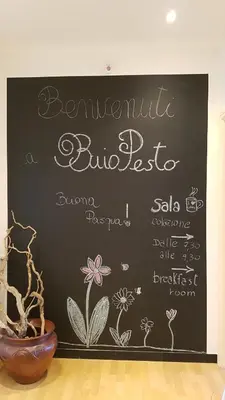 Benvenuti
a BuioPesto
Buona
Pasqua!
Sala
colazione
Dalle 7.30
alle 9.30
breakfast
room